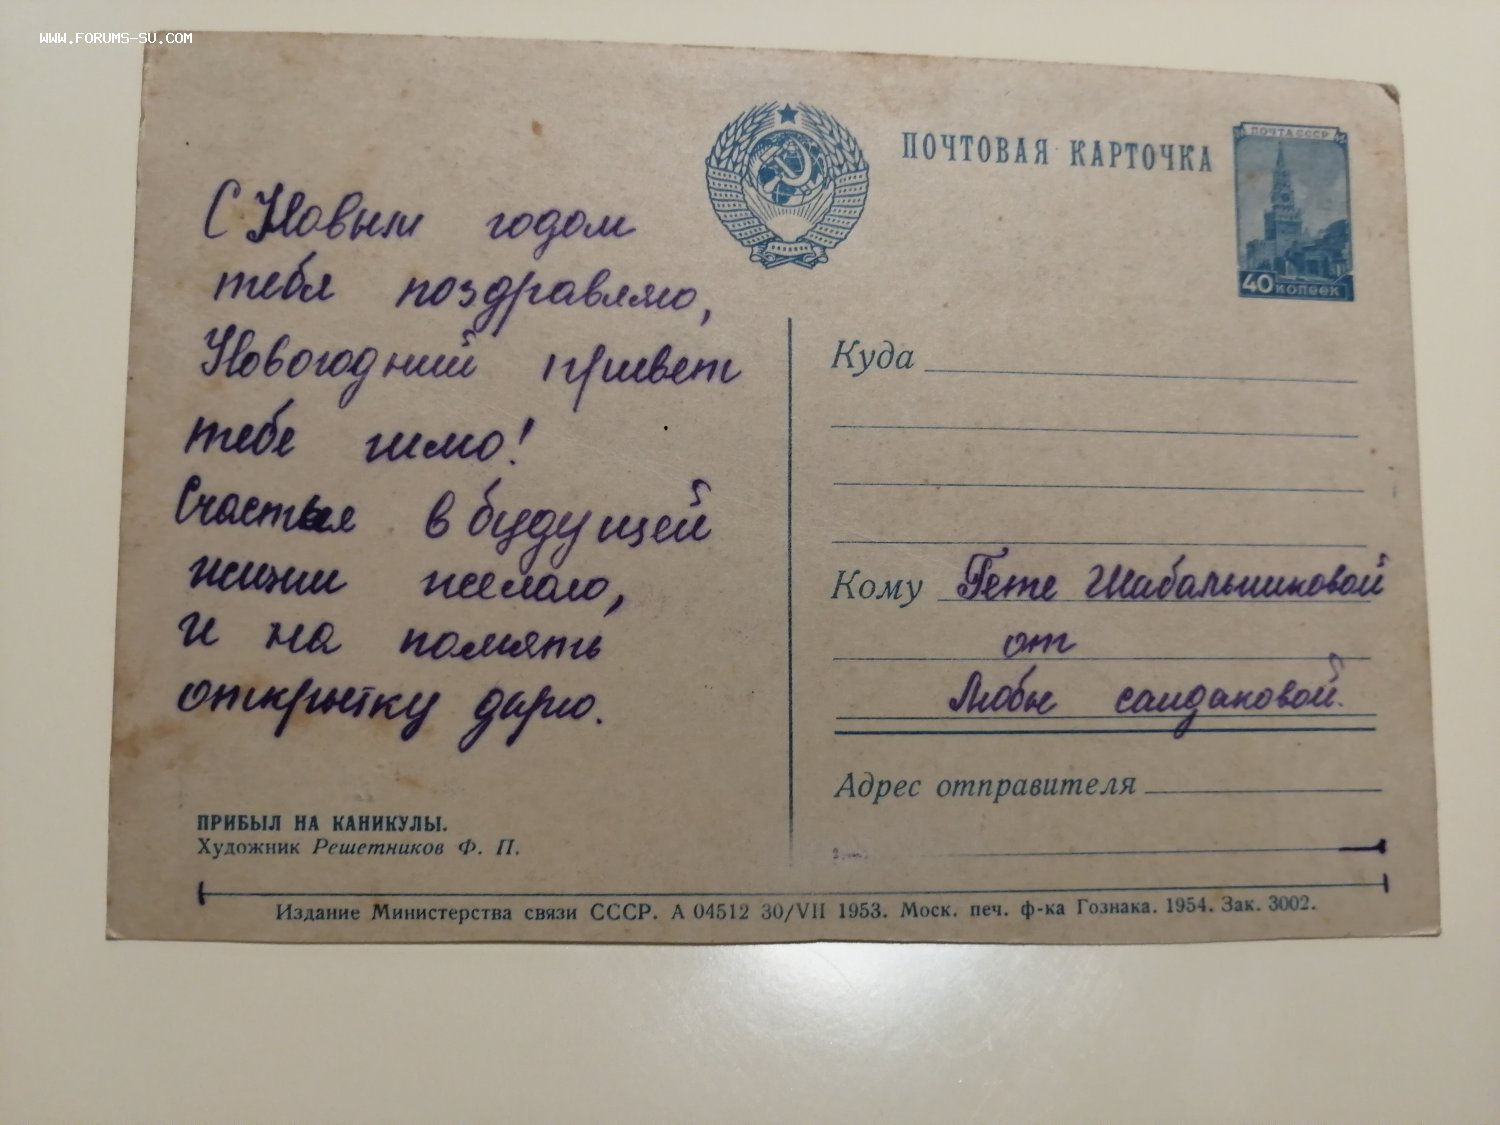 www.forums-su.com
ПОЧТОВАЯ КАРТОЧКА
ПОЧТА СССР
40 копеек
С Новым годом
тебя поздравляю,
Новогодний привет
тебе шлю!
Счастья в будущей
жизни желаю,
и на помять
открытку дарю.
Куда
Кому Гете Шабальниковой
от
Любы саидаковой.
Адрес отправителя
ПРИБЫЛ НА КАНИКУЛЫ.
Художник Решетников Ф. П.
Издание Министерства связи СССР. А 04512 30/VII 1953. Моск. печ. ф-ка Гознака. 1954. Зак. 3002.